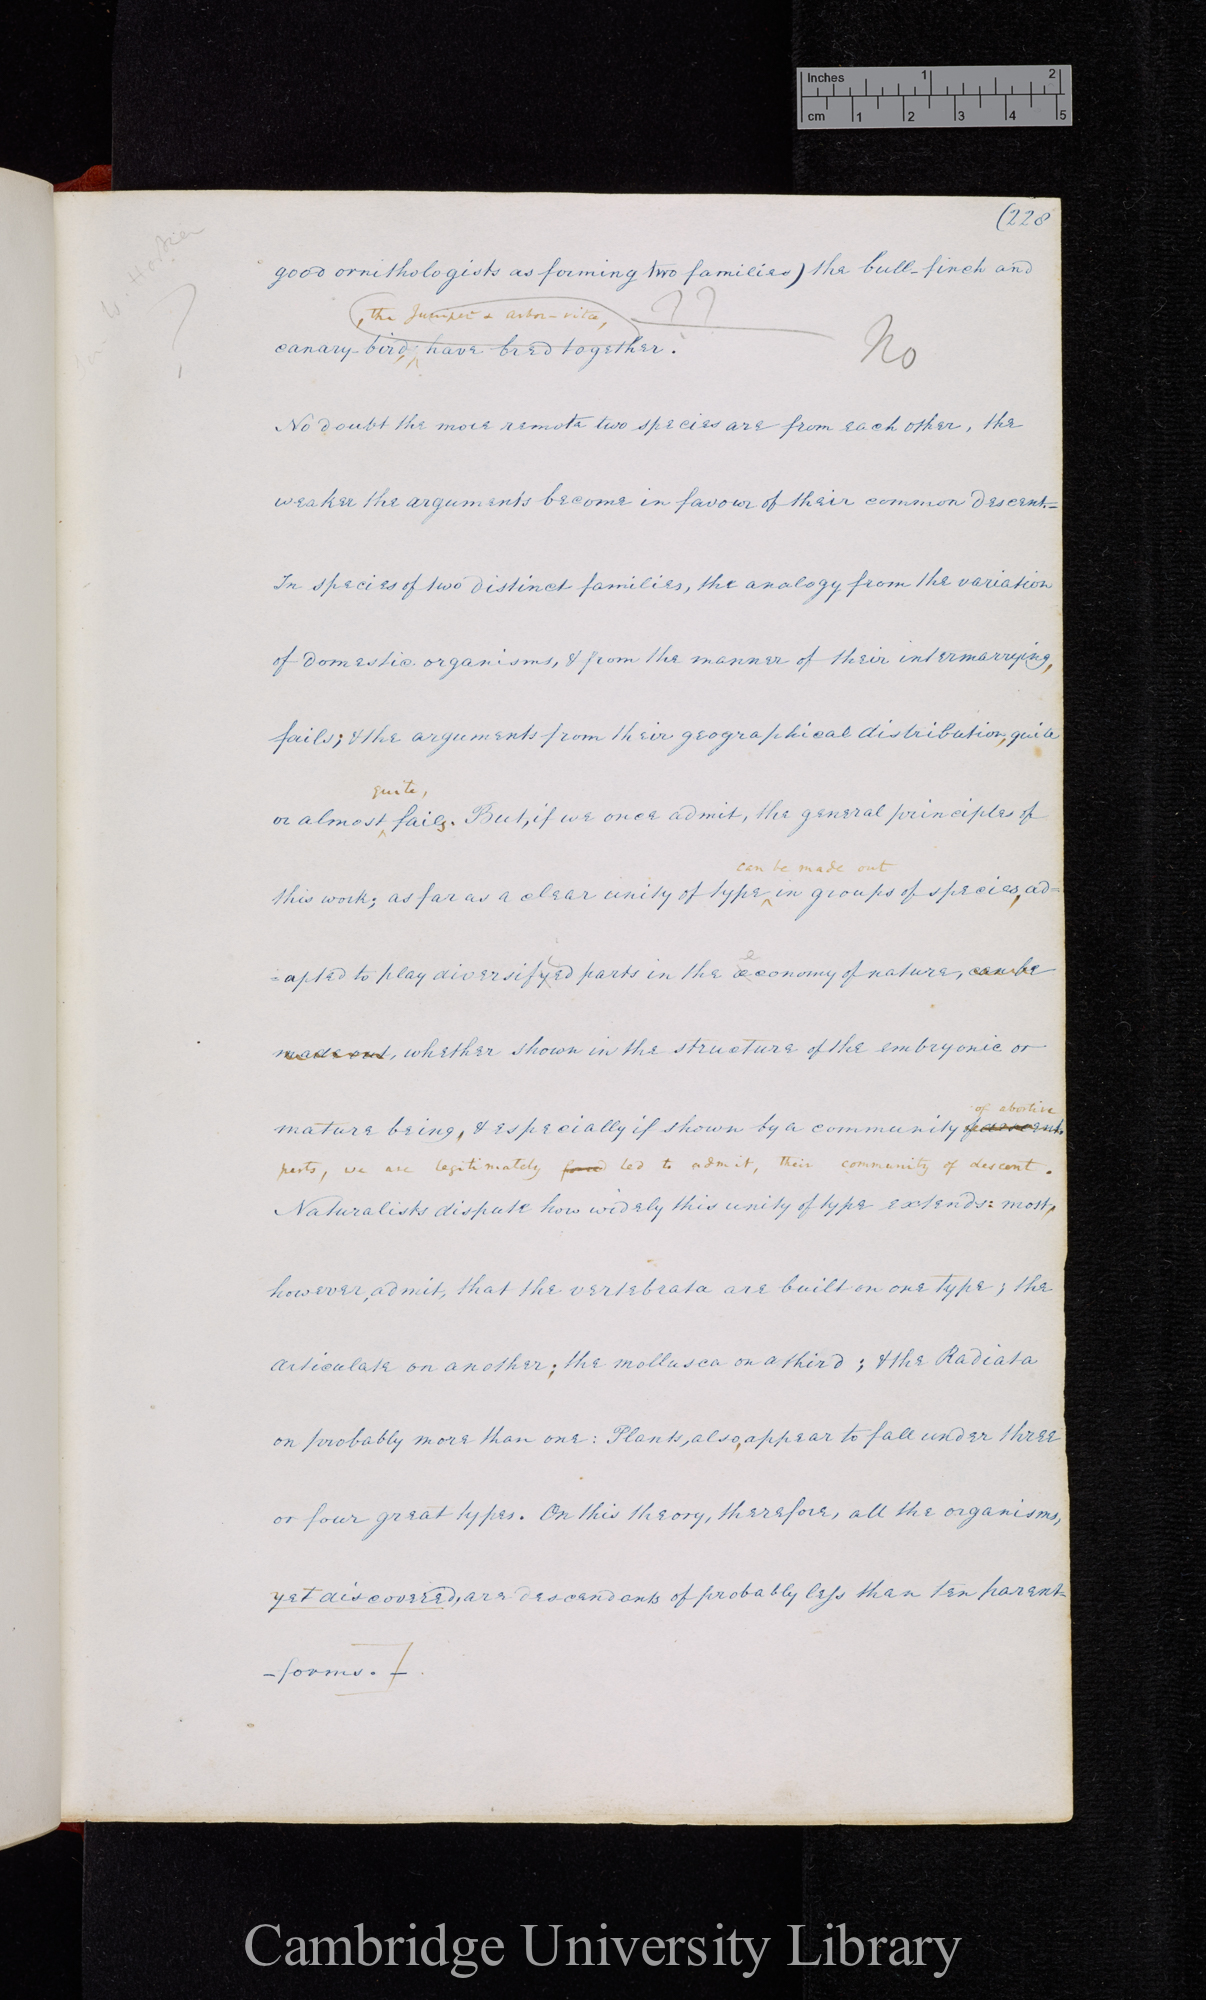 Inches 1 2
cm 1 2 3 4 5
(228
good ornithologists as forming two families) the bull-finch and
, the Juniper & arbor-vitæ,
??
canary-bird, have bred together.
No
No doubt the more remote two species are from each other, the
weaker the arguments become in favour of their common descent.=
In species of two distinct families, the analogy from the variation
of domestic organisms, & from the manner of their intermarrying,
fails; & the arguments from their geographical distribution, quite
quite,
or almost fails. But, if we once admit, the general principles of
can be made out
this work; as far as a clear unity of type in groups of species, ad=
=apted to play diversifyed parts in the economy of nature, can be
made out, whether shown in the structure of the embryonic or
of abortive
mature being, & especially if shown by a community of descent,
parts, we are legitimately forced led to admit, their community of descent.
Naturalists dispute how widely this unity of type extends: most,
however, admit, that the vertebrata are built on one type; the
articulate on another; the mollusca on a third; & the Radiata
on probably more than one: Plants, also, appear to fall under three
or four great types. On this theory, therefore, all the organisms,
yet discovered, are descendants of probably less than ten parent-
-forms. –
Cambridge University Library